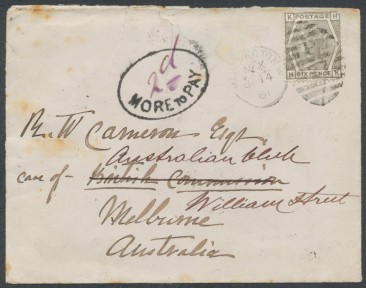 2d
MORE TO PAY
K POSTAGE H
H SIX PENCE K
14
R. W Cameron Esqr
Australian Club
care of British Commission
William Street
Melburne
Australia